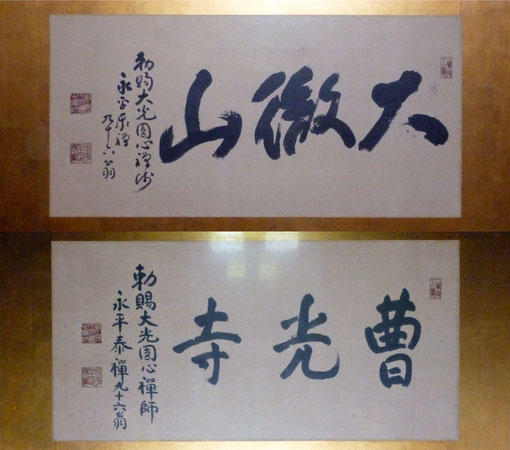 大徹山
勅賜大光圓心禪師
永平泰禪
九十六翁
曹光寺
勅賜大光圓心禪師
永平泰禪九十六翁